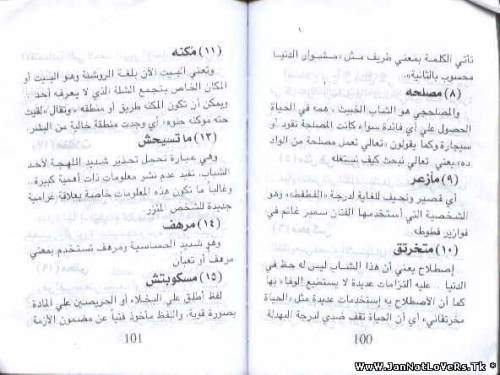 تأتي الكلمة بمعني ظريف مش «مشوار الدنيا
محسوب بالثانية».
(٨) مصلحه
والمصلحجي هو الشاب الخبيث، همه في الحياة
الحصول علي أي فائدة سواء كانت المصلحة نقود أو
سيجارة وكما يقولون «تعالي نعمل مصلحة من الواد
ده» يعني تعالي نبحث كيف نستغله
(٩) مأزعر
أي قصير ونحيف للغاية لدرجة «الفطفط» وهو
الشخصية التي أستخدمها الفنان سمير غانم في
فوازير فطوطه
(١٠) متخرتق
إصطلاح يعني أن هذا الشاب ليس له حظ في
الدنيا .. عليه التزامات عديدة لا يستطيع الوفاء بها
كما أن الاصطلاح به إستخدمات عديدة مثل «الحياة
مخرتقاني» أي أن الحياة تقف ضدي لدرجة البهدلة
100
(١١) مكنه
وتعني البيت الآن بلغة الروشنة وهو البيت أو
المكان الخاص بتجمع الشلة الذي لا يعرفه أحد
ويمكن أن تكون المكنه طريق أو منطقه «ونقال» لقيت
حته موكنه حتوه» أي وجدت منطقة خالية من البشر.
(١٣) ما تسيحش
وهي عبارة تحمل تحذير شديد اللهجة لأحد
الشباب، تفيد عدم نشر معلومات ذات أهمية كبيرة..
وغالباً ما تكون هذه المعلومات خاصة بعلاقة غرامية
جديدة للشخص المنزر.
(١٤) مرهف
وهو شديد الحساسية ومرهف تستخدم بمعني
مرهف أو تعبان
(١٥) مسكوبتش
لفظ أطلق علي البخلاء أو الحريصين علي المادة
بصورة قوية، والفظ مأخوذ فنياً عن مضمون الأزمة
101
WwW.JanNatLoVeRs.Tk *